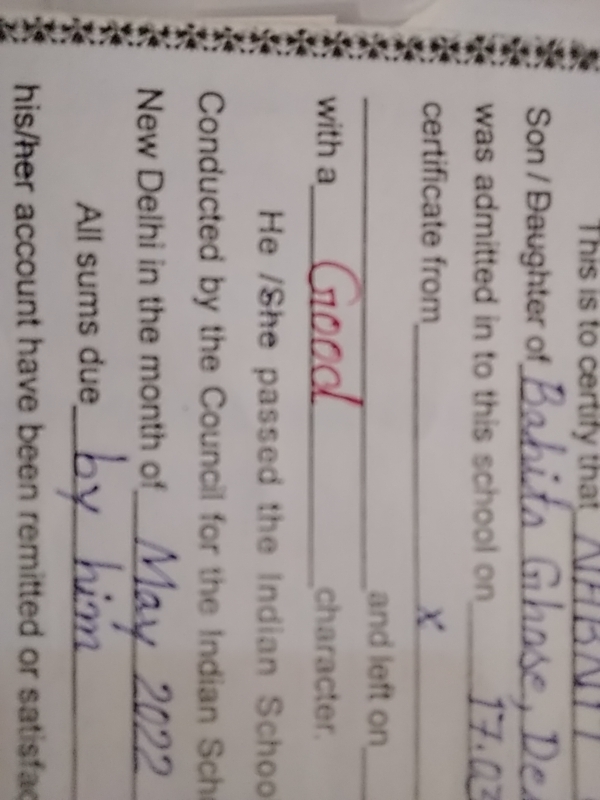 This is to certify that
Son / Daughter of Babita Ghose,
was admitted in to this school on 17.03
certificate from x
and left on
with a Good character.
He /She passed the Indian Schoo
Conducted by the Council for the Indian Sch
New Delhi in the month of May 2022
All sums due by him
his/her account have been remitted or satisfac